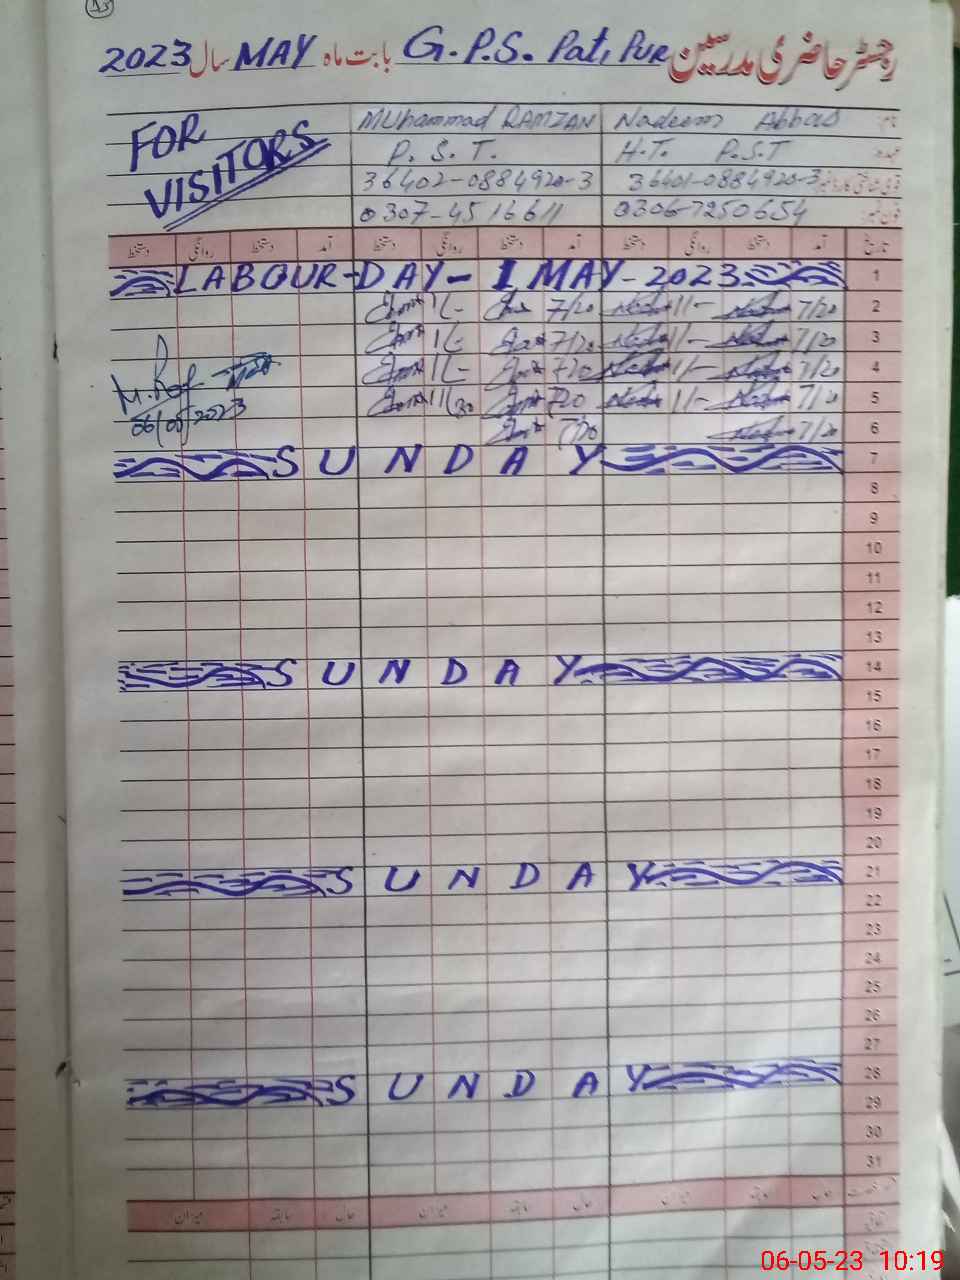 رجسٹر حاضری مدرسین G.P.S. Pati Pur بابت ماہ MAY سال 2023
FOR VISITORS
MUhammad RAMZAN Nadeem Abbas
P. S. T. H.T. P.S.T
36402-0884920-3 36401-0884920-3
0307-4516611 0306-7250654
تاریخ آمد دستخط روانگی دستخط آمد دستخط روانگی دستخط آمد دستخط روانگی دستخط
LABOUR-DAY-1 MAY-2023 1
11/- 7/20 11/- 7/20 2
11/- 7/20 11/- 7/20 3
11/- 7/20 11/- 7/20 4
11/30 7/20 11/- 7/20 5
06/05/2023
7/20 7/20 6
SUNDAY 7
8
9
10
11
12
13
SUNDAY 14
15
16
17
18
19
20
SUNDAY 21
22
23
24
25
26
27
SUNDAY 28
29
30
31
حال سابقہ میزان حال سابقہ میزان حال سابقہ میزان
06-05-23 10:19